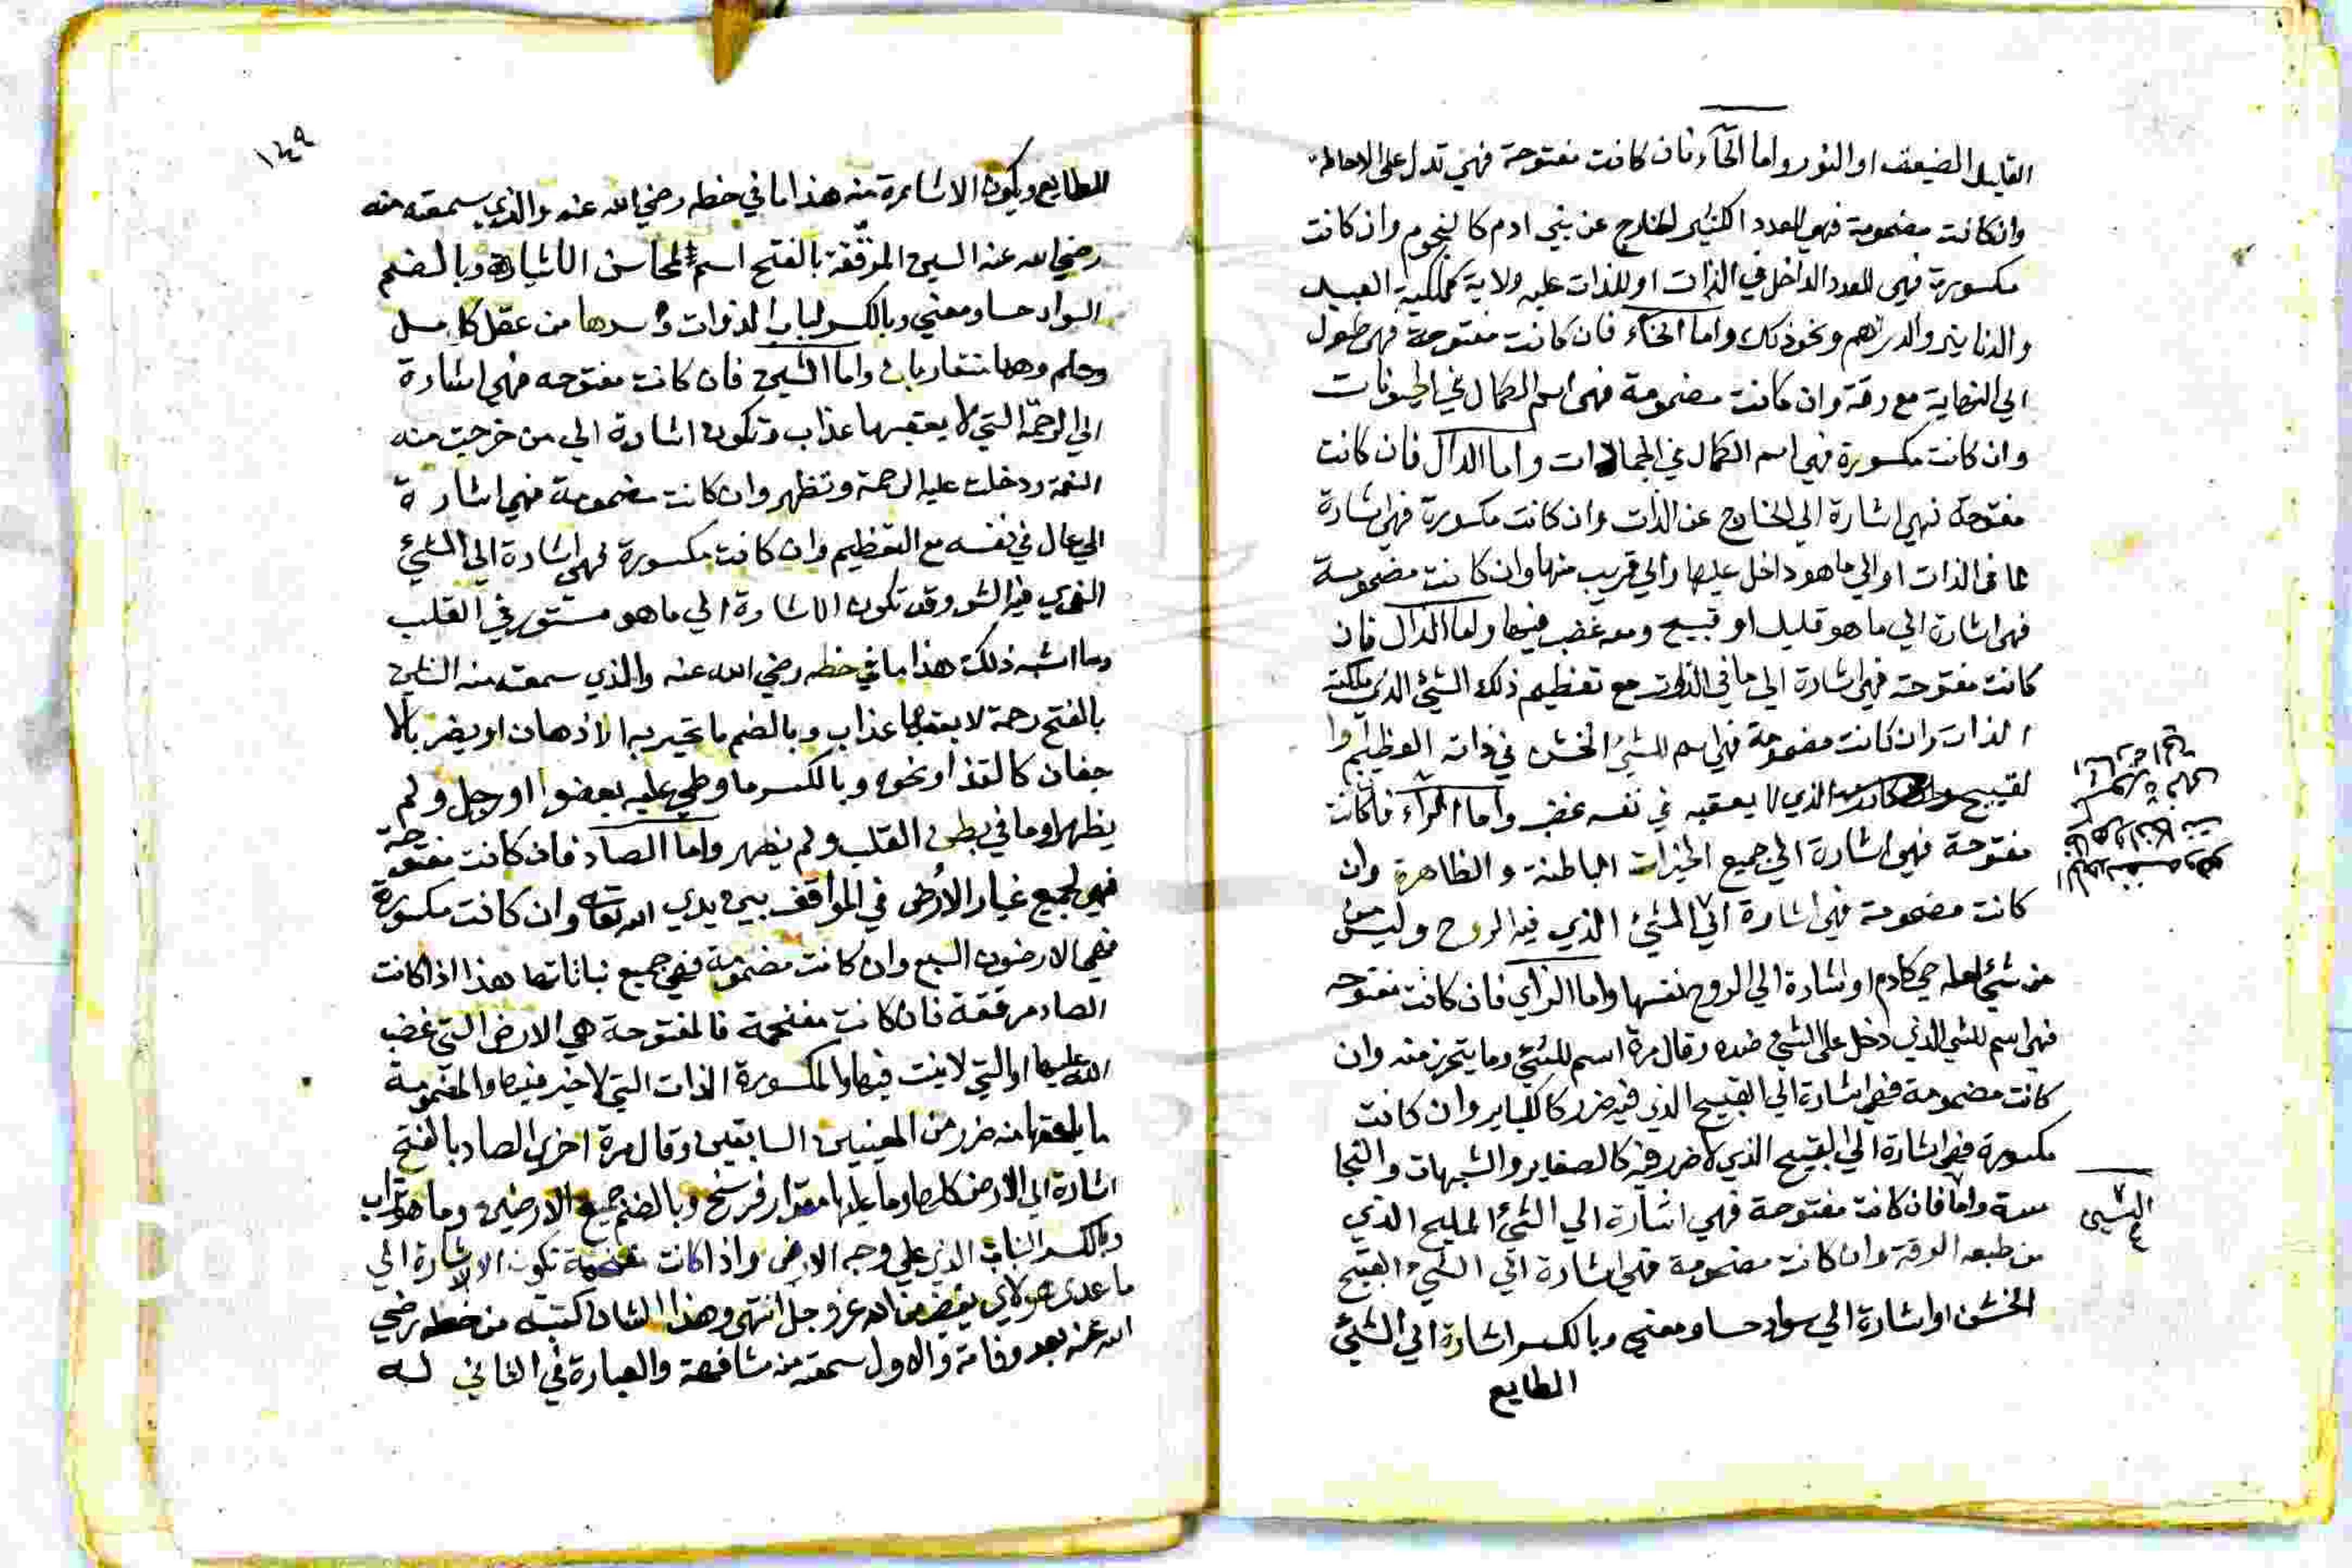 القليل الضعيف او النور واما الحآء فان كانت مفتوحة فهي تدل على الاحاطة
وان كانت مضمومة فهي للعدد الكثير الخارج عن بني ادم كالنجوم وان كانت
مكسورة فهي للعدد الداخل في الذات او للذات عليه ولاية كملكية العبيد
والدنانير والدراهم ونحو ذلك واما الخآء فان كانت مفتوحة فهي طول
الي النهاية مع رقة وان كانت مضمومة فهي اسم الكمال في الحيوانات
وان كانت مكسورة فهي اسم الكمال في الجمادات واما الدال فان كانت
مفتوحة فهي اشارة الي الخارج عن الذات وان كانت مكسورة فهي اشارة
لما في الذات او الي ما هو داخل عليها والي قريب منها وان كانت مضمومة
فهي اشارة الي ما هو قليل او قبيح ومعه غضب فيها واما الذال فان
كانت مفتوحة فهي اشارة الي ما في الذات مع تعظيم ذلك الشيئ الذي ملكته
الذات وان كانت مضمومة فهي اسم للشيئ الخشن في ذاته العظيم او ا
لقبيح الذي لا يعقبه في نفسه غضب واما الرآء فان كانت
مفتوحة فهي اشارة الي جميع الخيرات الباطنة والظاهرة وان
كانت مضمومة فهي اشارة الي الشيئ الذي فيه الروح وليس
من شيئ حي كادم او اشارة الي الروح نفسها واما الزاي فان كانت مفتوحة
فهي اسم للشي الذي دخل على الشيئ ضده وقال مرة اسم للشيئ وما يتحرز منه وان
كانت مضمومة فهي اشارة الي القبيح الذي فيه ضرر كالكباير وان كانت
مكسورة فهي اشارة الي القبيح الذي لا ضرر فيه كالصغاير والشبهات والنجا
سة واما فان كانت مفتوحة فهي اشارة الي الشيئ المليح الذي
من طبعه الرقة وان كانت مضمومة فهي اشارة الي الشيئ القبيح
الخشن او اشارة الي سواد حسا ومعني وبالكسر اشارة الي الشيئ
الطايع
السين
١٤٩
الطايع ويكون الاشارة منه هذا ما في خطه رضي الله عنه والذي سمعته منه
رضي الله عنه السين المرققة بالفتح اسم لمحاسن الاشياء وبالضم
السواد حسا ومعني وبالكسر لباب الذوات وسرها من عقل كامل
وحلم وهما متقاربان واما الشين فان كانت مفتوحه فهي اشارة
الي الرحمة التي لا يعقبها عذاب وتكون اشارة الي من خرجت منه
النقمة ودخلت عليه الرحمة وتظهر وان كانت مضمومة فهي اشارة
الي عال في نفسه مع التعظيم وان كانت مكسورة فهي اشارة الي الشيئ
الذي فيه الستر وقد تكون الاشارة الي ما هو مستور في القلب
وما اشبه ذلك هذا ما في خطه رضي الله عنه والذي سمعته منه الشين
بالفتح رحمة لا يعقبها عذاب وبالضم ما تحير به الاذهان او يضر بالا
جفان كالقذا ونحوه وبالكسر ما وطي عليه بعضو او رجل ولم
يظهر او ما في بطن القلب ولم يظهر واما الصاد فان كانت مفتوحة
فهي لجميع غبار الأرض في المواقف بين يدي الله تعالى وان كانت مكسورة
فهي الارضون السبع وان كانت مضمومة فهي جميع نباتاتها هذا اذا كانت
الصاد مرققة فان كانت مفخمة فالمفتوحة هي الارض التي غضب
الله عليها او التي لا ينبت فيها والمكسورة الذات التي لا خير فيها والمضمومة
ما يلحقها منه ضرر من المعنيين السابقين وقال مرة اخري الصاد بالفتح
اشارة الي الارض كلها وما عليها مقدار فرسخ وبالضم جميع الارضين وما هو تراب
وبالكسر النبات الذي علي وجه الارض واذا كانت مفخمة تكون الاشارة الي
ما عدى هولاي بغضب من الله عز وجل انتهى وهذا الشان كتبته من خطه رضي
الله عنه بعد وفاته والاول سمعته منه مشافهة والعبارة في الثاني له